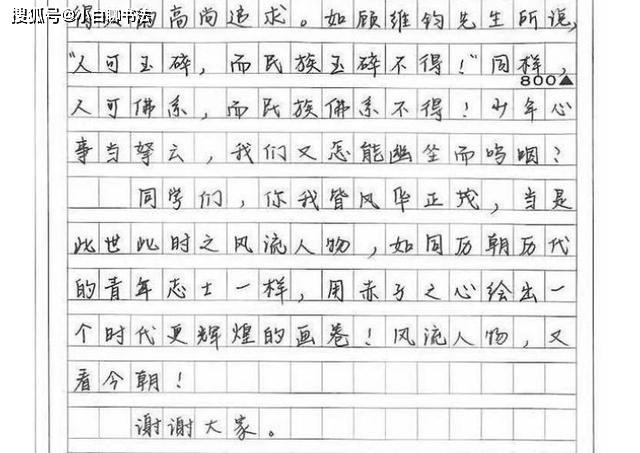 搜狐号@小白聊书法
的高尚追求。如顾维钧先生所说,
"人可玉碎,而民族玉碎不得!"同样,
800▲
人可佛系,而民族佛系不得!少年心
事当拏云,我们又怎能幽坐而呜咽?
同学们,你我皆风华正茂,当是
此世此时之风流人物,如同历朝历代
的青年志士一样,用赤子之心绘出一
个时代更辉煌的画卷!风流人物,又
看今朝!
谢谢大家。